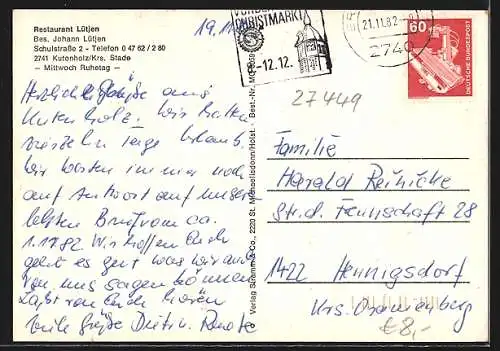 Restaurant Lütjen
Bes. Johann Lütjen
Schulstraße 2 - Telefon 0 47 62 / 2 80
2741 Kutenholz/Krs. Stade
— Mittwoch Ruhetag —
19.11.
CHRISTMARKT
-12.12.
21.11.82
2740
60
DEUTSCHE BUNDESPOST
27449
Herzliche Grüße aus
Kutenholz. Wir hatten
vierzehn Tage Urlaub.
Wir warten immer noch
auf Antwort auf unsern
letzten Brief vom ca.
1.1.82 Wir hoffen Euch
geht es gut was wir auch
von uns sagen können
Laßt von Euch hören
viele Grüße Dietr. u. Renate
Verlag Schramm & Co., 2203 St. Michaelisdonn/Holst. - Best.-Nr.
Familie
Harald Reinicke
Str. d. Freundschaft 28
1422 Hennigsdorf
Krs. Oranienburg
€ 8,-